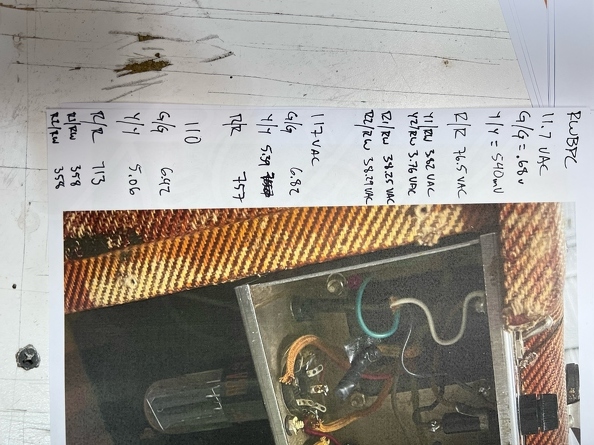 11.7 VAC
G/G = .68v
Y/Y = 540mV
R/R 76.5 VAC
Y1/RW 3.82 VAC
Y2/RW 3.76 VAC
R1/RW 38.25 VAC
R2/RW 38.29 VAC
117 VAC
G/G 6.82
Y/Y 5.39
R/R 757
110
G/G 642
Y/Y 5.06
R/R 713
R1/RW 358
R2/RW 358